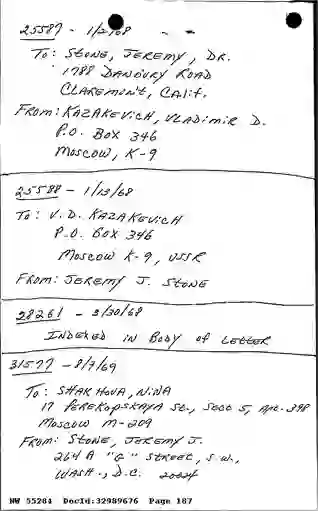 25587 - 1/2/68
To: STONE, JEREMY, DR.
1788 DANBURY ROAD
CLAREMONT, CALIF.
FROM: KAZAKEVICH, VLADIMIR D.
P.O. BOX 346
MOSCOW, K-9
25588 - 1/13/68
To: V. D. KAZAKEVICH
P.O. BOX 346
MOSCOW K-9, USSR
FROM: JEREMY J. STONE
28261 - 3/30/68
INDEXED IN BODY OF LETTER
31577 - 8/7/69
To: SHAKHOVA, NINA
17 PEREKOPSKAYA ST., SECT 5, APT. 398
MOSCOW M-209
FROM: STONE, JEREMY J.
264 A "G" STREET, S.W.,
WASH., D.C. 20024
NW 55284 DocId:32989676 Page 187